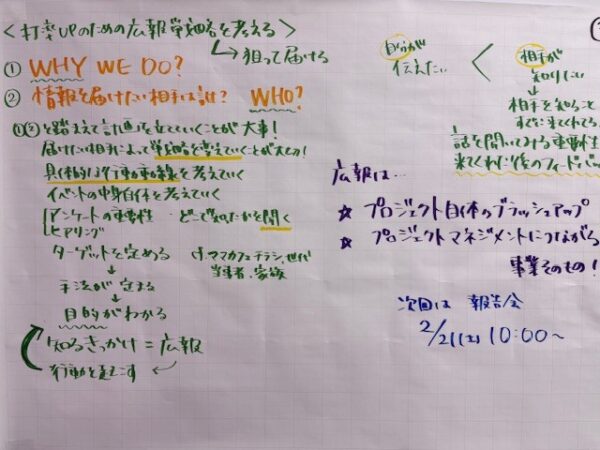 <打率UPのための広報戦略を考える>
↳ 狙って届ける
① WHY WE DO?
② 情報を届けたい相手は誰? WHO?
①②を踏まえて計画を立てていくことが大事!
届けたい相手によって戦略を変えていくことが大切!
具体的な行動動線を考えていく
イベントの中身自体を考えていく
アンケートの重要性 どこで知ったかを聞く
ヒアリング
ターゲットを定める
↓
手法が定まる
↓
目的がわかる
知るきっかけ = 広報
行動を起こす
ママカフェチラシ、世代
当事者、家族
自分が
伝えたい
<
相手が
知りたい
↓
相手を知ること
すでに来てくれてる
話を聞いてみる重要性
来てくれた後のフィードバック
広報は…
☆ プロジェクト自体のブラッシュアップ
☆ プロジェクトマネジメントにつながる
事業そのもの!
次回は 報告会
10:00〜